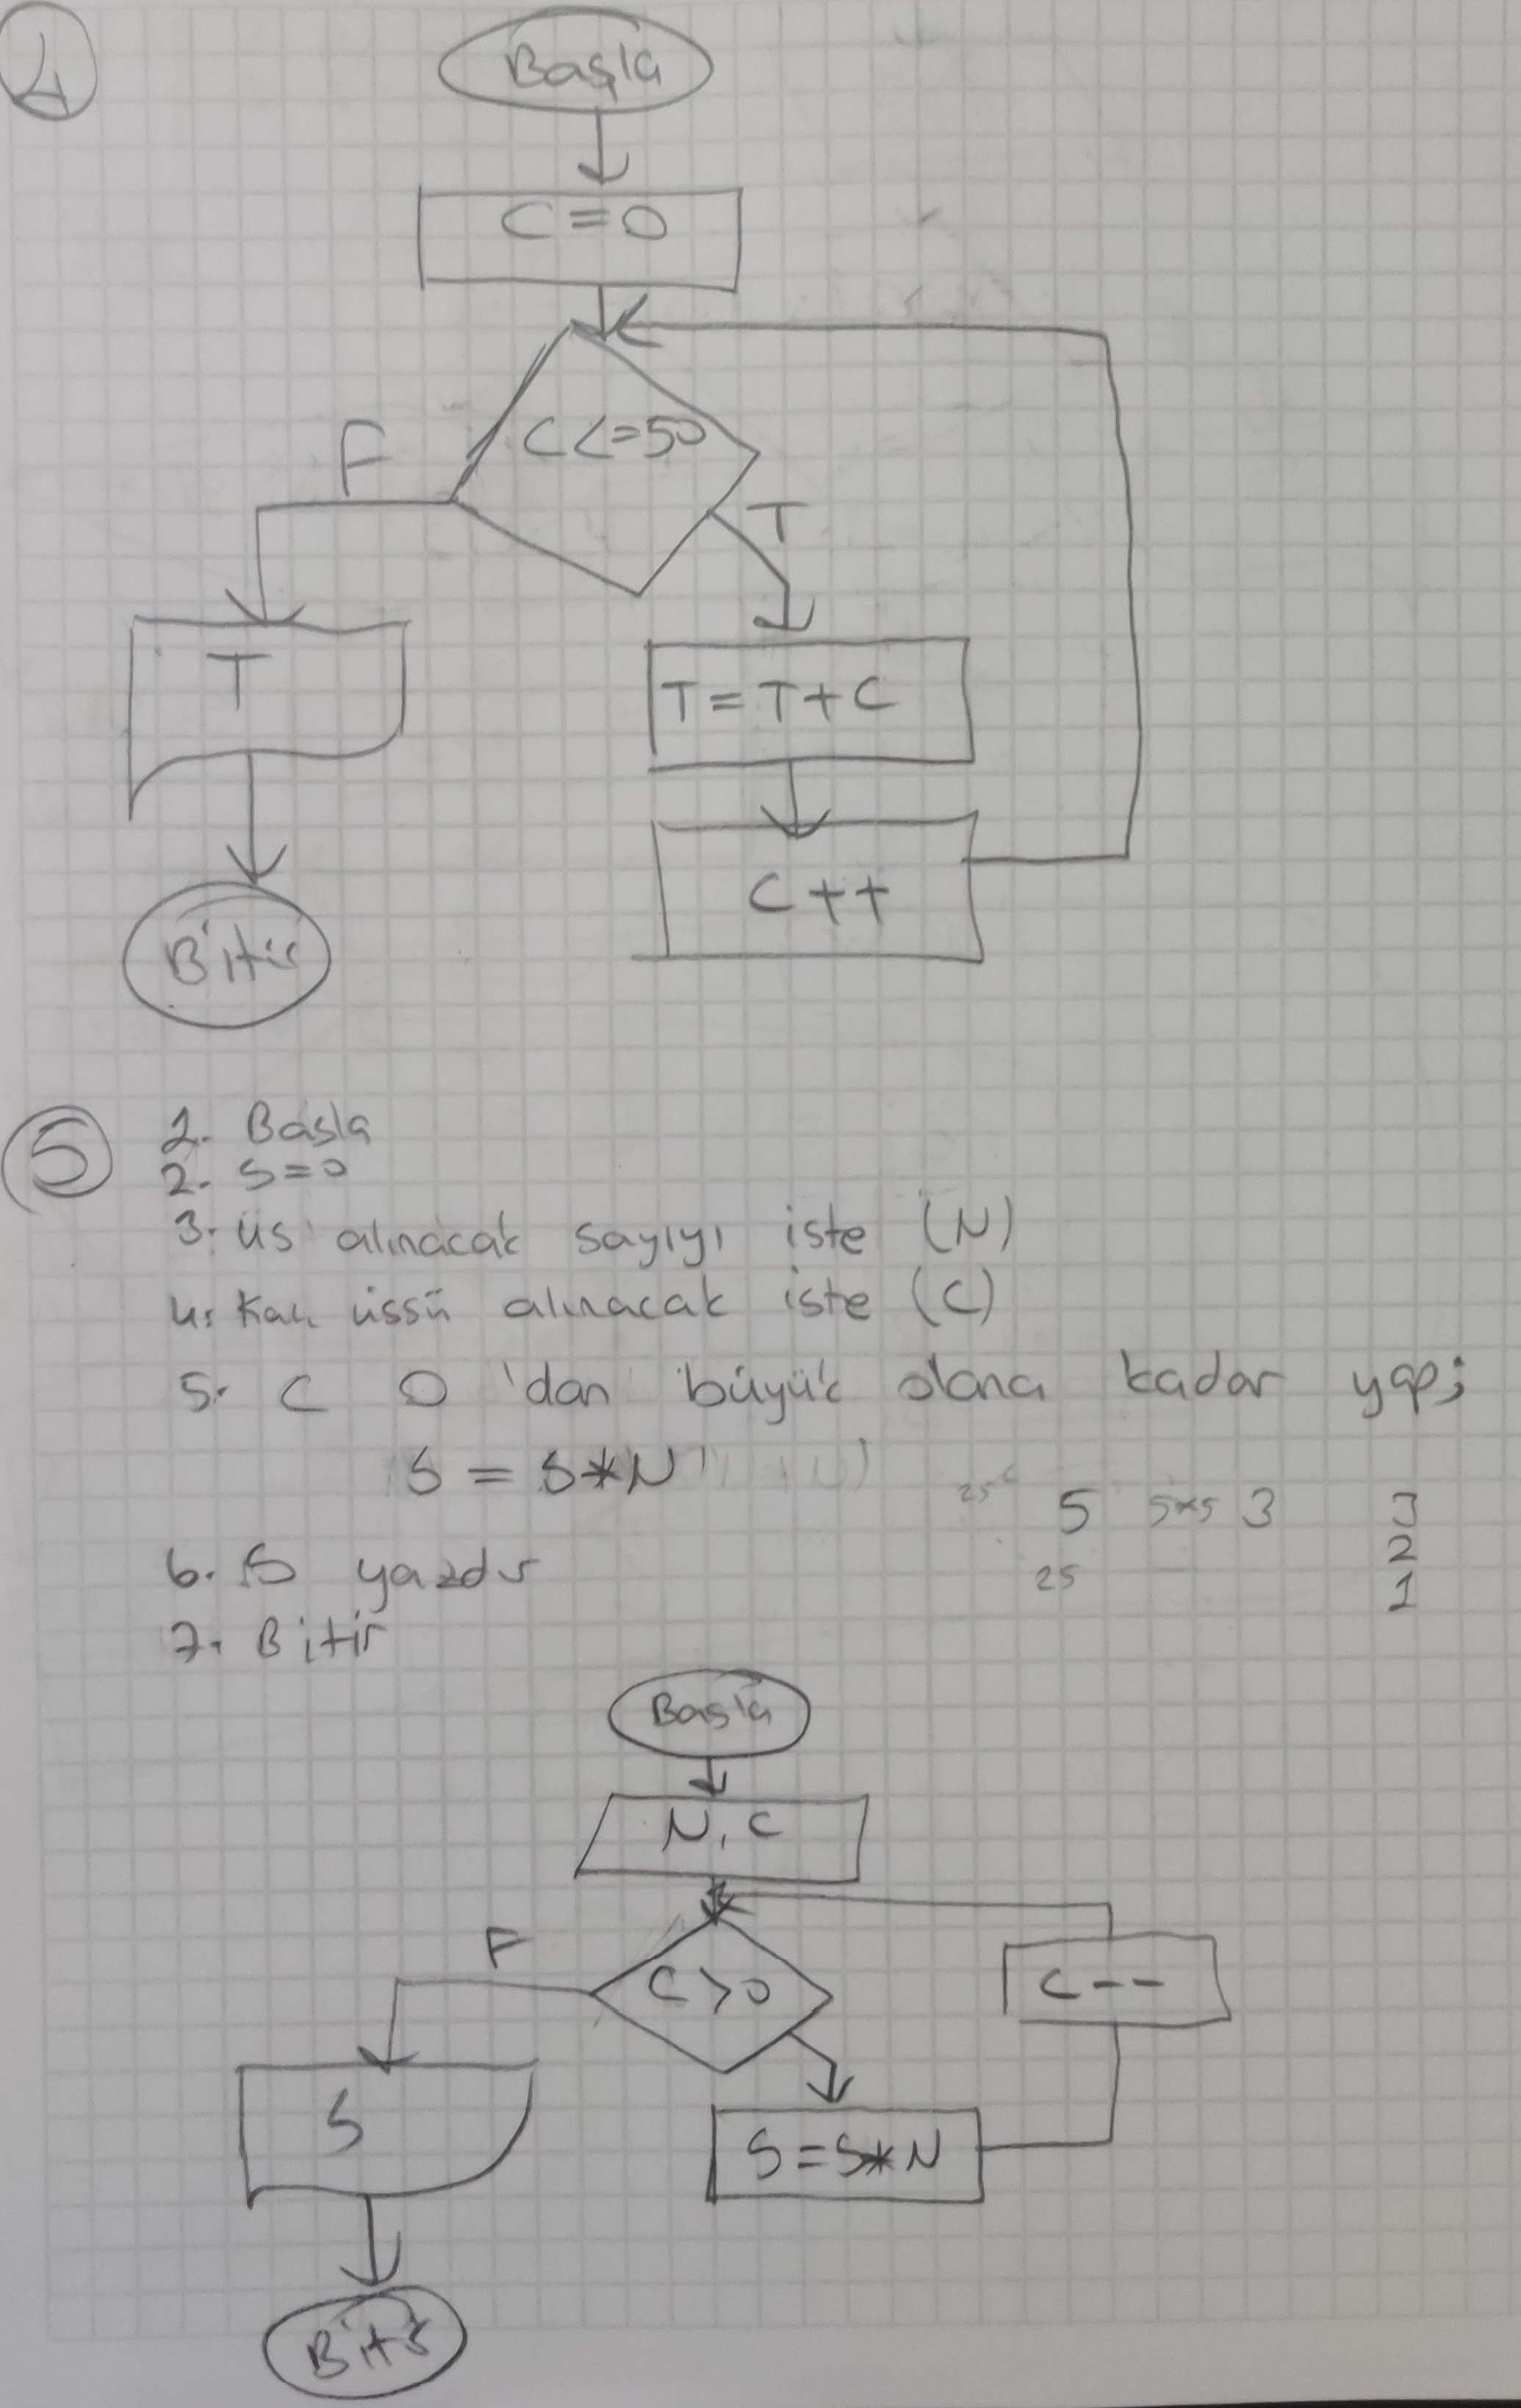 4
Başla
C=0
C<=50
F
T
T
T=T+C
C++
Bitir
5
1. Başla
2. S=0
3. üs alınacak sayıyı iste (N)
4. Kaç üssü alınacak iste (C)
5. C 0 'dan büyük olana kadar yap;
S = S*N
25 5 5*5 3 3
2
25
1
6. S yazdır
7. Bitir
Başla
N, C
F
C>0
C--
S
S=S*N
Bitir